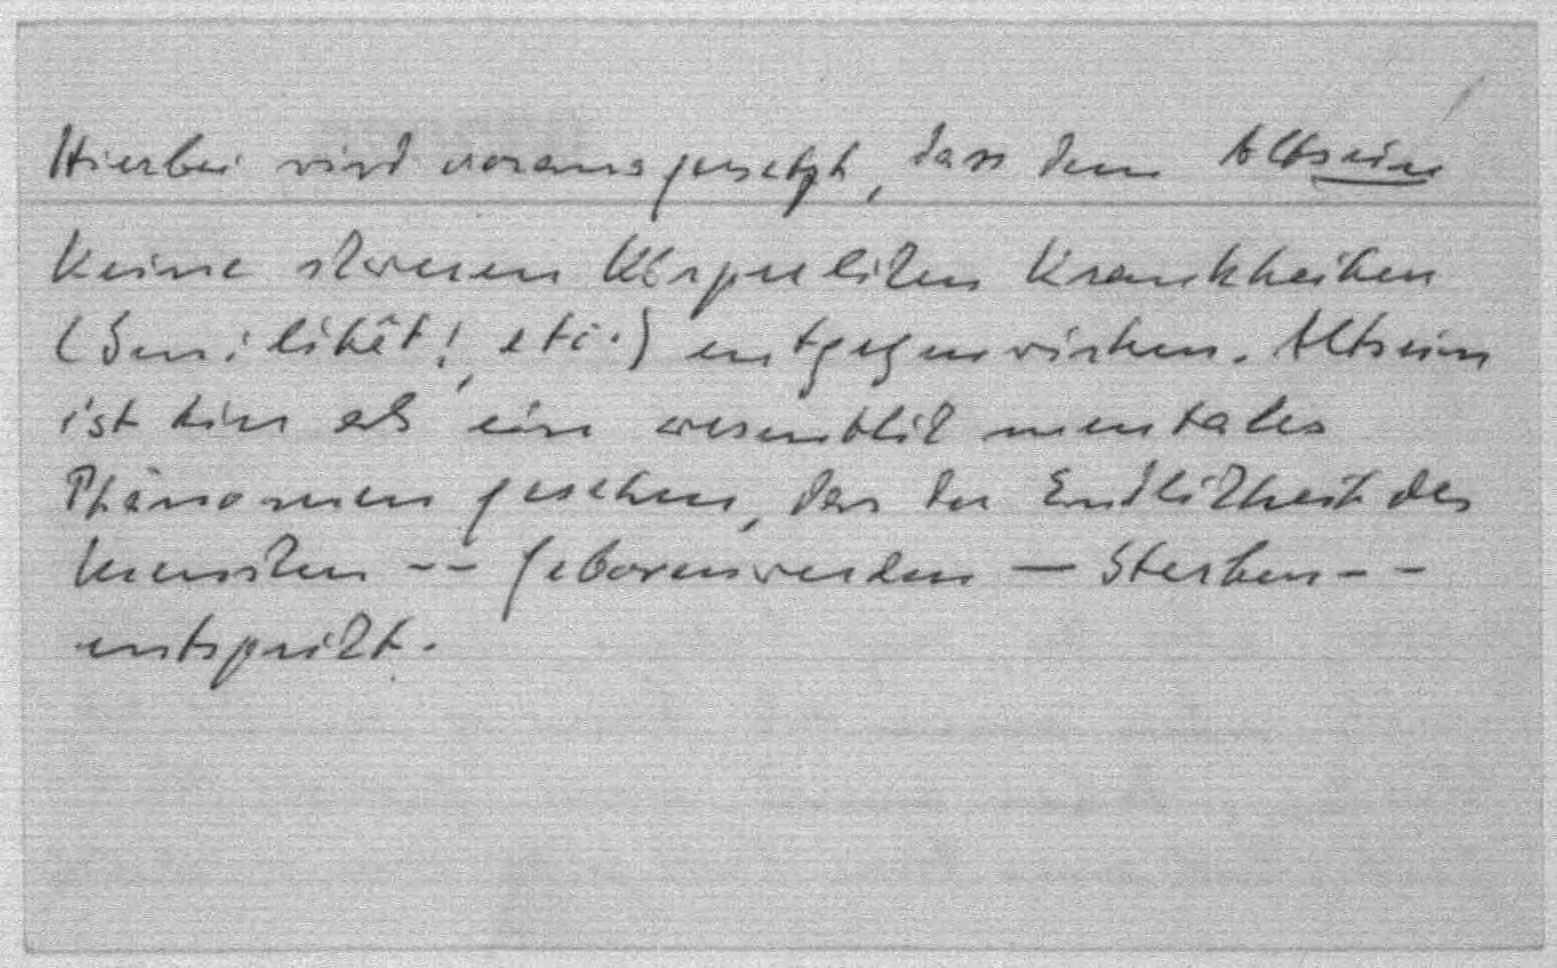 Hierbei wird vorausgesetzt, dass dem Altsein
keine schweren körperlichen Krankheiten
(Senilität!, etc.) entgegenwirken. Altsein
ist hier als ein wesentlich mentales
Phänomen gesehen, das der Endlichkeit des
Menschen -- Geborenwerden — Sterben --
entspricht.